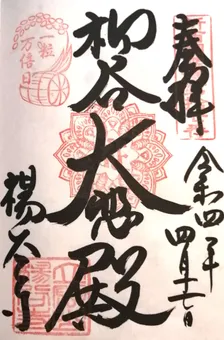 奉拝
令和四年四月十七日
柳谷
大悲殿
楊谷寺
一粒
万倍日